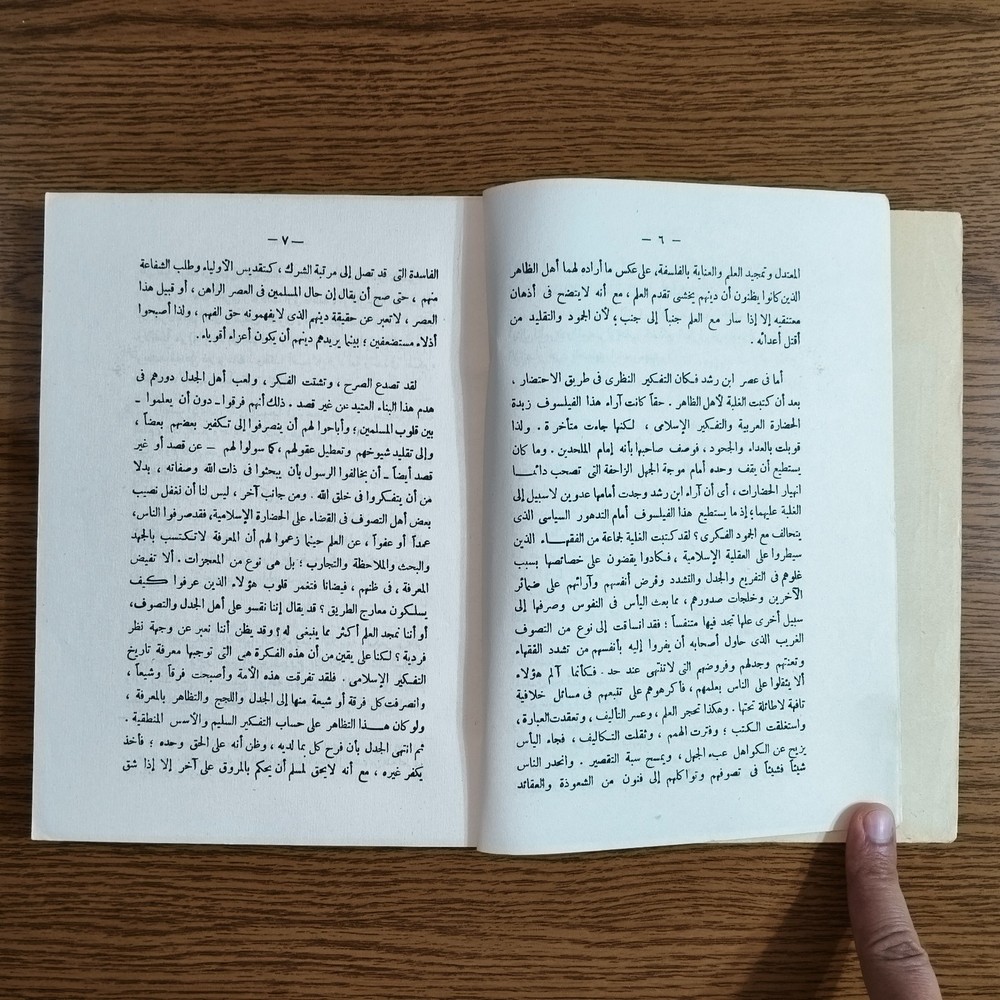 — ٦ —
المعتدل وتمجيد العلم والعناية بالفلسفة، على عكس ما أراده لهما أهل الظاهر
الذين كانوا يظنون أن دينهم يخشى تقدم العلم ، مع أنه لا يتضح فى أذهان
معتنقيه إلا إذا سار مع العلم جنباً إلى جنب ؛ لأن الجمود والتقليد من
أقتل أعدائه .
أما فى عصر ابن رشد فكان التفكير النظرى فى طريق الاحتضار ،
بعد أن كتبت الغلبة لأهل الظاهر . حقاً كانت آراء هذا الفيلسوف زبدة
الحضارة العربية والتفكير الإسلامى ، لكنها جاءت متأخرة . ولذا
قوبلت بالعداء والجحود ، فوصف صاحبها بأنه إمام الملحدين . وما كان
يستطيع أن يقف وحده أمام موجة الجهل الزاحفة التى تصحب دائما
انهيار الحضارات ، أى أن آراء ابن رشد وجدت أمامها عدوين لا سبيل إلى
الغلبة عليهما؛ إذ ما يستطيع هذا الفيلسوف أمام التدهور السياسى الذى
يتحالف مع الجمود الفكرى ؟ لقد كتبت الغلبة لجماعة من الفقهاء الذين
سيطروا على العقلية الإسلامية ، فكادوا يقضون على خصائصها بسبب
غلوهم فى التفريع والجدل والتشدد وفرض أنفسهم وآرائهم على ضمائر
الآخرين وخلجات صدورهم ، مما بعث اليأس فى النفوس وصرفها إلى
سبيل أخرى علها تجد فيها متنفساً ؛ فقد انساقت إلى نوع من التصوف
الغريب الذى حاول أصحابه أن يفروا إليه بأنفسهم من تشدد الفقهاء
وتعنتهم وجدلهم وفروضهم التى لا تنتهى عند حد . فكأنما آلم هؤلاء
ألا يثقلوا على الناس بعلمهم ، فأكرهوهم على تتبعهم فى مسائل خلافية
تافهة لا طائلة تحتها . وهكذا تحجر العلم ، وعسر التأليف ، وتعقدت العبارة ،
واستغلقت الكتب ؛ وفترت الهمم ، وثقلت التكاليف ، فجاء اليأس
يزيح عن الكواهل عبء الجهل ، ويمسح سبة التقصير . وانحدر الناس
شيئاً فشيئاً فى تصوفهم وتواكلهم إلى فنون من الشعوذة والعقائد
— ٧ —
الفاسدة التى قد تصل إلى مرتبة الشرك ، كتقديس الأولياء وطلب الشفاعة
منهم ، حتى صح أن يقال إن حال المسلمين فى العصر الراهن ، أو قبيل هذا
العصر ، لا تعبر عن حقيقة دينهم الذى لا يفهمونه حق الفهم ، ولذا أصبحوا
أذلاء مستضعفين ؛ بينما يريدهم دينهم أن يكون أعزاء أقوياء .
لقد تصدع الصرح ، وتشتت الفكر ، ولعب أهل الجدل دورهم فى
هدم هذا البناء العتيد عن غير قصد . ذلك أنهم فرقوا ـ دون أن يعلموا ـ
بين قلوب المسلمين ؛ وأباحوا لهم أن ينصرفوا إلى تكفير بعضهم بعضاً ،
وإلى تقليد شيوخهم وتعطيل عقولهم ، كما سولوا لهم — عن قصد أو غير
قصد أيضاً — أن يخالفوا الرسول بأن يبحثوا فى ذات الله وصفاته ، بدلا
من أن يتفكروا فى خلق الله . ومن جانب آخر ، ليس لنا أن نغفل نصيب
بعض أهل التصوف فى القضاء على الحضارة الإسلامية، فقد صرفوا الناس،
عمداً أو عفواً ، عن العلم حينما زعموا لهم أن المعرفة لا تكتسب بالجهد
والبحث والملاحظة والتجارب ؛ بل هى نوع من المعجزات . ألا تفيض
المعرفة ، فى ظنهم ، فيضانا فتغمر قلوب هؤلاء الذين عرفوا كيف
يسلكون معارج الطريق ؟ قد يقال إننا نقسو على أهل الجدل والتصوف،
أو أننا نمجد العلم أكثر مما ينبغى له ؟ وقد يظن أننا نعبر عن وجهة نظر
فردية ؟ لكنا على يقين من أن هذه الفكرة هى التى توجبها معرفة تاريخ
التفكير الإسلامى . فلقد تفرقت هذه الأمة وأصبحت فرقاً وشيعاً ،
وانصرفت كل فرقة أو شيعة منها إلى الجدل واللجج والتظاهر بالمعرفة ،
ولو كان هذا التظاهر على حساب التفكير السليم والأسس المنطقية .
ثم انتهى الجدل بأن فرح كل بما لديه ، وظن أنه على الحق وحده ؛ فأخذ
يكفر غيره ، مع أنه لا يحق لمسلم أن يحكم بالمروق على آخر إلا إذا شق